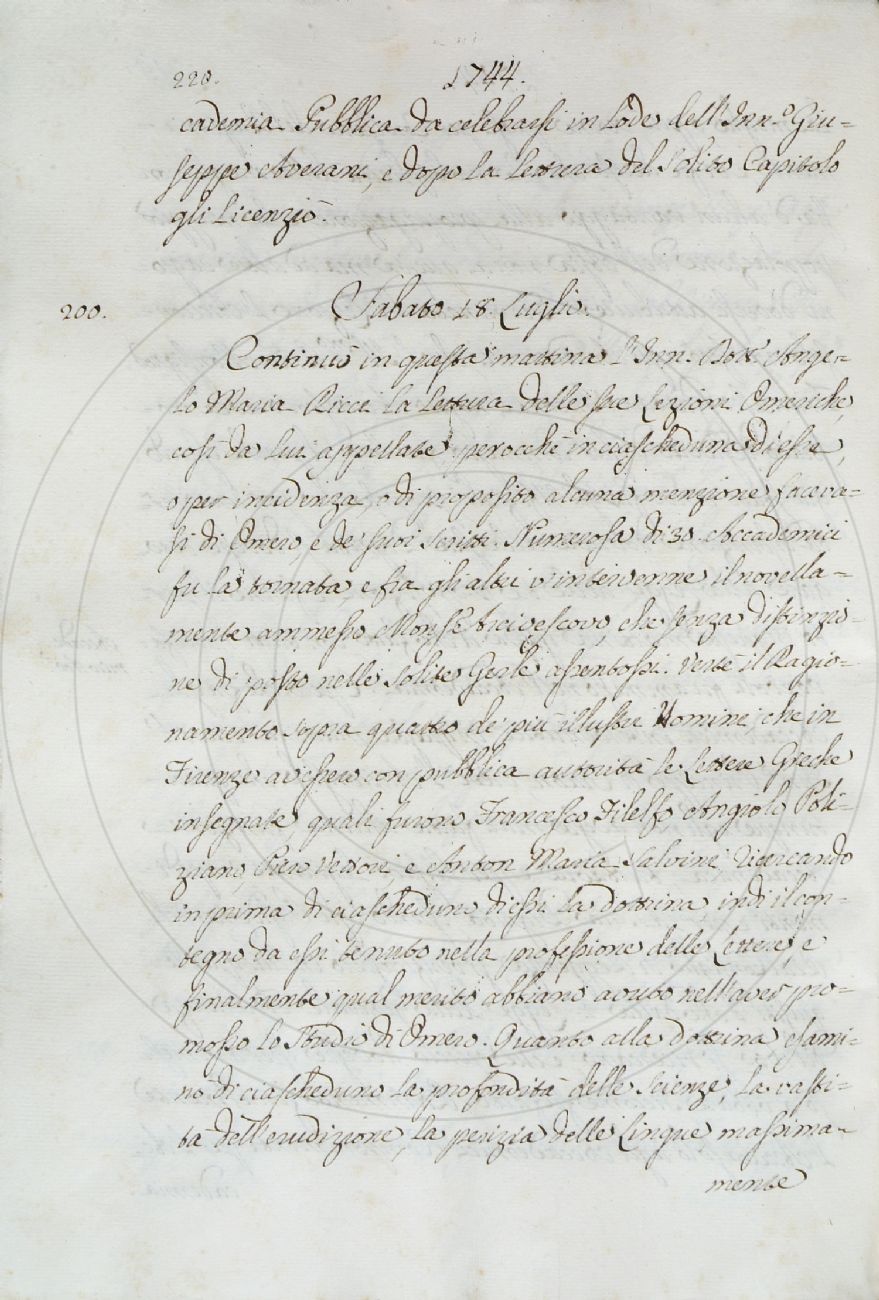 220. 1744.
cademia Pubblica da celebrarsi in Lode dell'Inn.º Giu-
seppe Averani, e dopo la Lettura del solito Capitolo
gli Licenziò.
200. Sabato 18. Luglio.
Continuò in questa mattina l'Inn. Dott. Ange-
lo Maria Ricci la Lettura delle sue Lezioni Omeriche,
così da lui appellate, perocchè in ciascheduna di esse,
o per incidenza, o di proposito alcuna menzione faceva-
si di Omero, e de' suoi scritti. Numerosa di 30. Accademici
fu la tornata, e fra gli altri v'intervenne il novella-
mente ammesso Monsr. Arcivescovo, che senza distinzio-
ne di posto nelle solite Gerle assentossi. Verté il Ragio-
namento sopra quattro de' più illustri Uomini, che in
Firenze avessero con pubblica autorità le Lettere Greche
insegnate quali furono Francesco Filelfo Angiolo Poli-
ziano, Pier Vettori e Anton Maria Salvini, ricercando
in prima di ciascheduno di essi la dottrina, indi il con-
tegno da essi tenuto nella professione delle Lettere, e
finalmente qual merito abbiano avuto nell'aver pro-
mosso lo studio di Omero. Quanto alla dottrina esami-
nò di ciascheduno la profondità delle scienze, la vasti-
tà dell'erudizione, la perizia delle Lingue massima-
mente